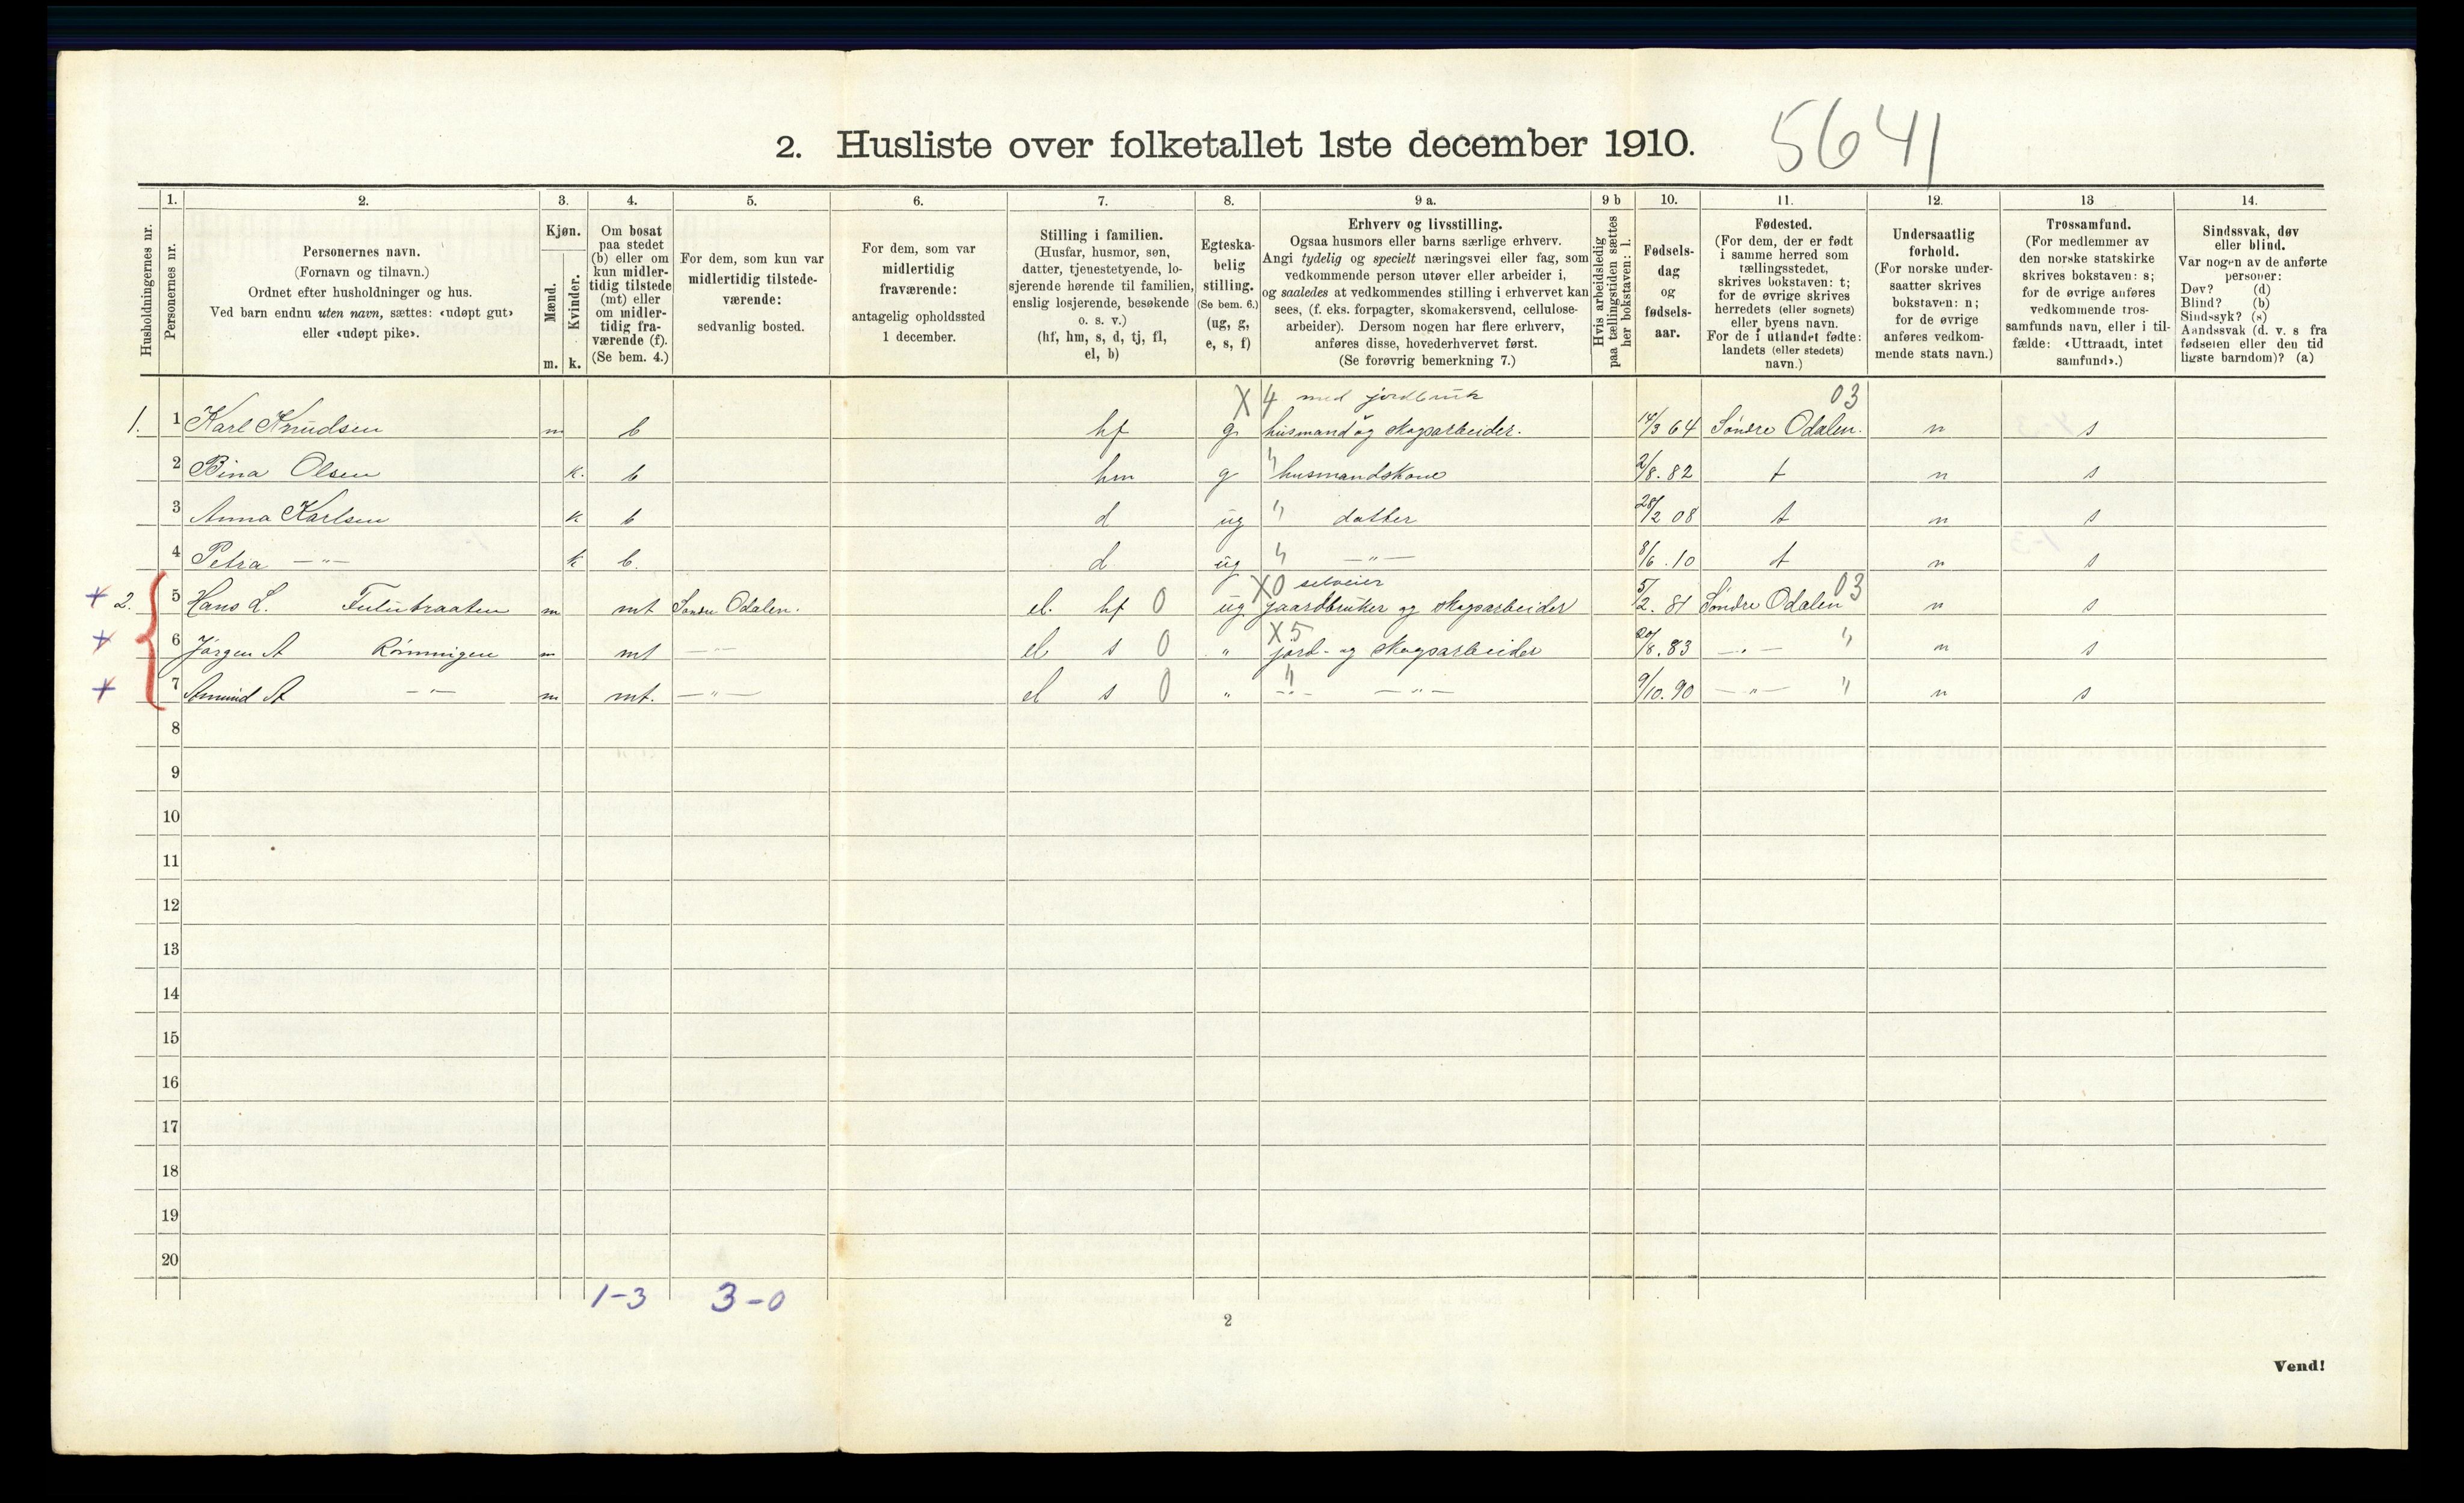 2. Husliste over folketallet 1ste december 1910. 5641
1. 2. 3. 4. 5. 6. 7. 8. 9 a. 9 b 10. 11. 12. 13 14.
Husholdningernes nr.
Personernes nr.
Personernes navn.
(Fornavn og tilnavn.)
Ordnet efter husholdninger og hus.
Ved barn endnu uten navn, sættes: «udøpt gut»
eller «udøpt pike».
Kjøn.
Mænd.
Kvinder.
m. k.
Om bosat
paa stedet
(b) eller om
kun midler-
tidig tilstede
(mt) eller
om midler-
tidig fra-
værende (f).
(Se bem. 4.)
For dem, som kun var
midlertidig tilstede-
værende:
sedvanlig bosted.
For dem, som var
midlertidig
fraværende:
antagelig opholdssted
1 december.
Stilling i familien.
(Husfar, husmor, søn,
datter, tjenestetyende, lo-
sjerende hørende til familien,
enslig losjerende, besøkende
o. s. v.)
(hf, hm, s, d, tj, fl,
el, b)
Egteska-
belig
stilling.
(Se bem. 6.)
(ug, g,
e, s, f)
Erhverv og livsstilling.
Ogsaa husmors eller barns særlige erhverv.
Angi tydelig og specielt næringsvei eller fag, som
vedkommende person utøver eller arbeider i,
og saaledes at vedkommendes stilling i erhvervet kan
sees, (f. eks. forpagter, skomakersvend, cellulose-
arbeider). Dersom nogen har flere erhverv,
anføres disse, hovederhvervet først.
(Se forøvrig bemerkning 7.)
Hvis arbeidsledig
paa tællingstiden sættes
her bokstaven: l.
Fødsels-
dag
og
fødsels-
aar.
Fødested.
(For dem, der er født
i samme herred som
tællingsstedet,
skrives bokstaven: t;
for de øvrige skrives
herredets (eller sognets)
eller byens navn.
For de i utlandet fødte:
landets (eller stedets)
navn.)
Undersaatlig
forhold.
(For norske under-
saatter skrives
bokstaven: n;
for de øvrige
anføres vedkom-
mende stats navn.)
Trossamfund.
(For medlemmer av
den norske statskirke
skrives bokstaven: s;
for de øvrige anføres
vedkommende tros-
samfunds navn, eller i til-
fælde: «Uttraadt, intet
samfund».)
Sindssvak, døv
eller blind.
Var nogen av de anførte
personer:
Døv? (d)
Blind? (b)
Sindssyk? (s)
Aandssvak (d. v. s fra
fødselen eller den tid
ligste barndom)? (a)
X 4 med jordbruk 03
1. 1 Karl Knudsen m b hf g husmand og skogsarbeider. 14/3 64 Søndre Odalen. n s
2 Bina Olsen k. b hm g " husmandskone 2/8. 82 t n s
3 Anna Karlsen k b d ug " datter 28/2 08 t n s
4 Petra —"— k b. d ug " —"— 8/6. 10 t n s
X0 selveier 03
+ 2. 5 Hans L. m mt Søndre Odalen. el. hf 0 ug gaardbruker og skogsarbeider 5/2. 81 Søndre Odalen n s
X5
+ 6 Jørgen A Rønningen m mt —"— el s 0 " jord- og skogsarbeider 20/8. 83 —"— " n s
+ 7 Amund A —"— m mt. —"— el s 0 " —"— —"— 9/10. 90 —"— " n s
8
9
10
11
12
13
14
15
16
17
18
19
20
1-3 3-0
2
Vend!